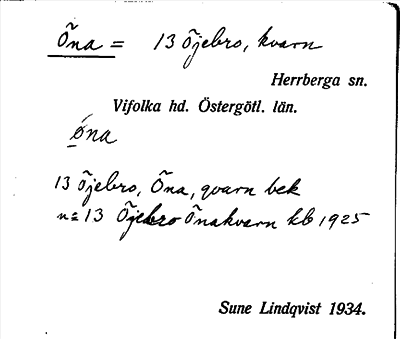 Öna = 13 Öjebro, kvarn
Herrberga sn.
Vifolka hd. Östergötl. län.
øna
13 Öjebro, Öna, qvarn bek
n=13 Öjebro Önakvarn kb 1925
Sune Lindqvist 1934.